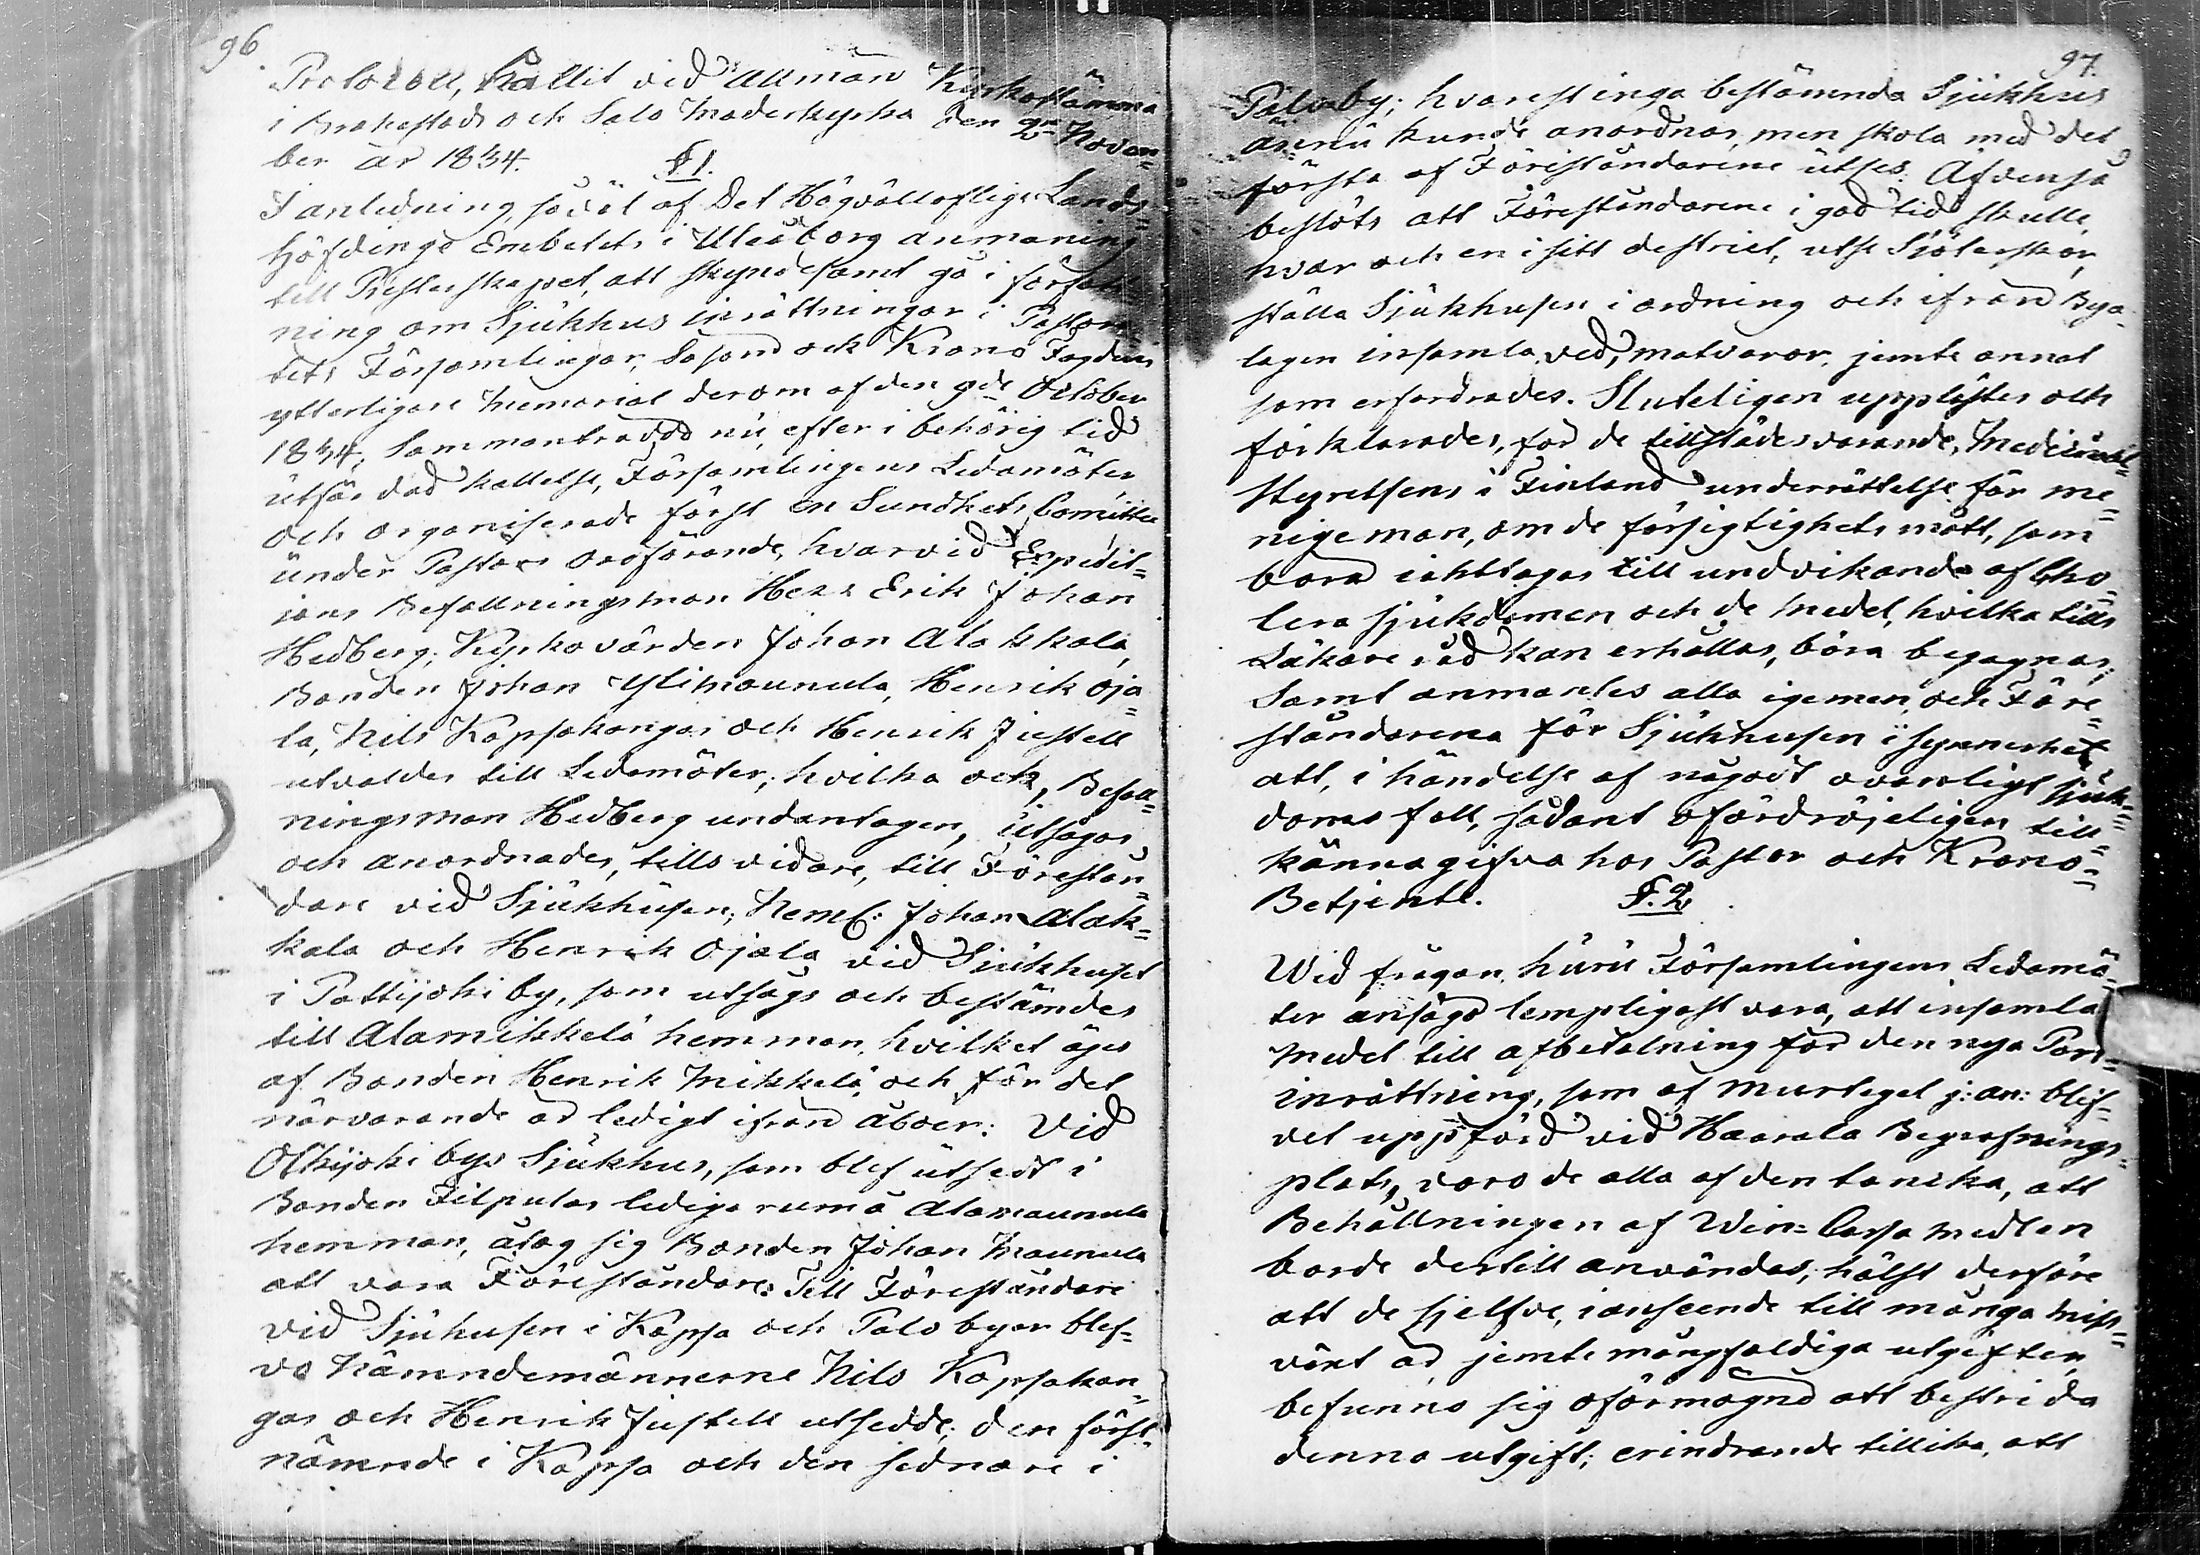 96.
Protocoll, hållit vid Allmän Kyrkostämma
i Brahestads och Salo Moderkyrka den 2dn Novem-
ber år 1834.
§ 1.
I anledning, såväl af Det Högvällofliga Lands-
höfdinge Embetets i Uleåborg anmaning
till Presterskapet, att skyndesamt gå i författ-
ning om Sjukhus inrättningar i Pastora-
tets Församlingar, Såsom ock Krono Fogdens
ytterligare Memorial derom af den 9de October
1834; Sammanträdde nu, efter i behörig tid
utfärdad kallelse, Församlingens Ledamöter
och organiserade först en Sundhets Comittée
under Pastors ordförande, hvarvid Expedit-
jons Befallningsman Herr Erik Johan
Hedberg, Kyrkovärden Johan Alakkala,
Bonden Johan Ylimaunula, Henrik Oja-
la, Nils Kopsakangas och Henrik Justell
utvaldes till Ledamöter; hvilka ock, Befall-
ningsman Hedberg undantagen, utsågos
och anordnades, tills vidare, till Förestån-
dare vid Sjukhusen; Neml: Johan Alak-
kala och Henrik Ojala vid Sjukhuset
i Pattijoki by, som utsågs och bestämdes
till Alamikkelä hemman, hvilket äges
af Bonden Henrik Mikkelä, och för det
närvarande är ledigt ifrån åboer. Vid
Olkijoki bys Sjukhus, som blef utsedt i
Bonden Filpulas lediga rum å Alamaunula
hemman, åtog sig Bonden Johan Maunula
att vara Föreståndare. Till Föreståndare
vid Sjuhusen i Kopsa och Palo byar blef-
vo Nämndemännerne Nils Kopsakan-
gas och Henrik Justell utsedde; den först-
nämnde i Kopsa och den sednare i
97.
Palo by; hvarest inga bestämnda Sjukhus
ännu kunde anordnas, men skola med det
första af Föreståndarene utses. Äfvenså
beslöts att Föreståndarene i god tid skulle,
hvar och en i sitt destrict, utse Sjöterskor,
ställa Sjukhusen i ordning och ifrån Bya-
lagen insamla ved, matvaror, jemte annat
som erfordrades. Sluteligen upplästes och
förklarades, för de tillstädesvarande, Medicinal-
styrelsens i Finland underrättelse för me-
nige man, om de försigtighets mått, som
böra iakttagas till undvikande af Cho-
lera sjukdomen och de medel, hvilka tills
Läkare råd kan erhållas, böra begagnas;
Samt anmantes alla igemen, och Före-
ståndarena för Sjukhusen i synnerhet,
att, i händelse af någodt ovanligt Sjuk-
doms fall, sådant ofördröjeligen till-
känna gifva hos Pastor och Krono-
Betjente.
§. 2.
Wid frågan, huru Församlingens Ledamö-
ter ansågo lempligast vara, att insamla
Medel till afbetalning för den nya Port-
inrättning, som af Murtegel j: an: blif-
vet uppförd vid Haarala Begrafnings-
plats, voro de alla af den tanka, att
Behållningen af Win-Cassa medlen
borde dertill användas, hälst derföre
att de sjelfve, i anseende till många miss-
växt år, jemte mångfaldiga utgifter,
befunno sig oförmögna att bestrida
denna utgift; erindrande tillika, att